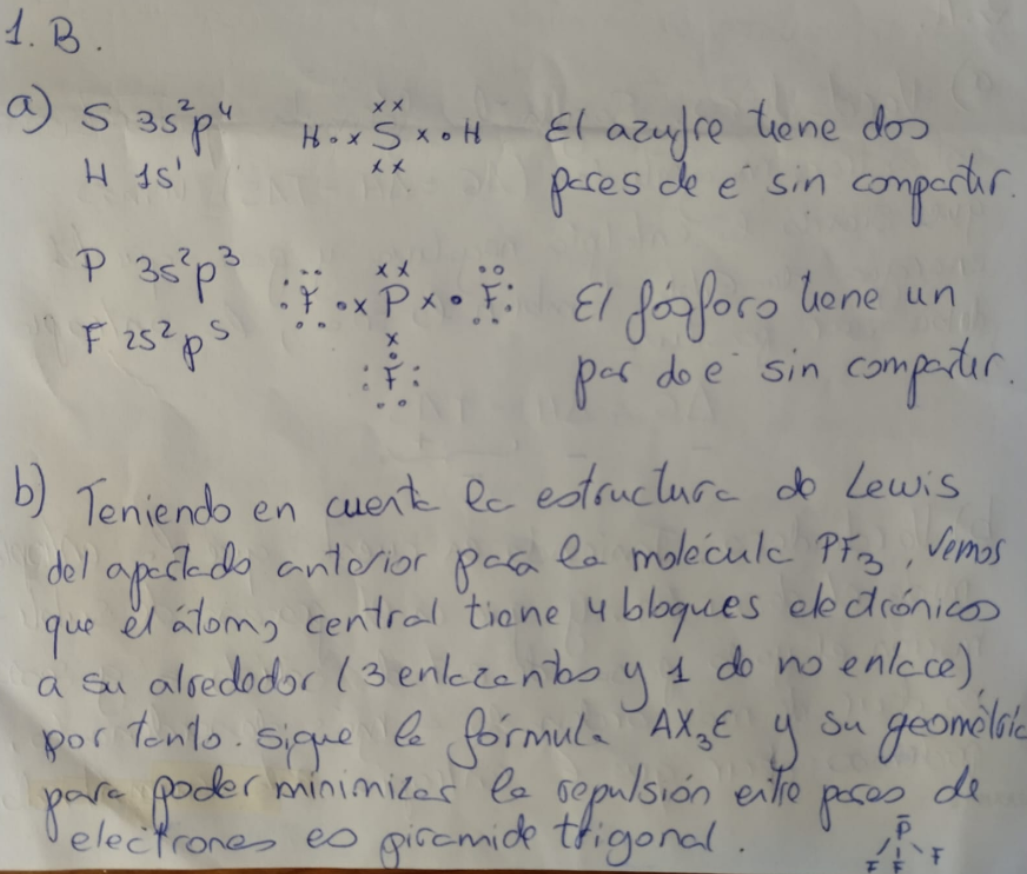 1. B.
a) S 3s²p⁴ H·xSx·H El azufre tiene dos
H 1s¹ pares de e⁻ sin compartir.
P 3s²p³
:F·xPx·F: El fósforo tiene un
F 2s²p⁵
:F: par de e⁻ sin compartir.
b) Teniendo en cuenta la estructura de Lewis
del apartado anterior para la molécula PF₃, vemos
que el átomo central tiene 4 bloques electrónicos
a su alrededor (3 enlazantes y 1 de no enlace),
por tanto. sigue la fórmula AX₃E y su geometría
para poder minimizar la repulsión entre pares de
electrones es piramide trigonal.
P
F F F